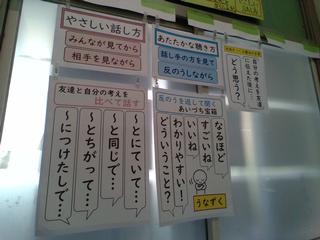 やさしい話し方
みんなが見てから
相手を見ながら
友達と自分の考えを
比べて話す
〜とにていて…
〜と同じで…
〜とちがって…
〜につけたしで…
あたたかな聴き方
話し手の方を見て
反のうしながら
反のうを返して聞く
あいづち宝箱
なるほど
すごいね
いいね
わかりやすい！
どういうこと？
うなずく
自分の考えを友達
に伝えた後に、
どう思う？